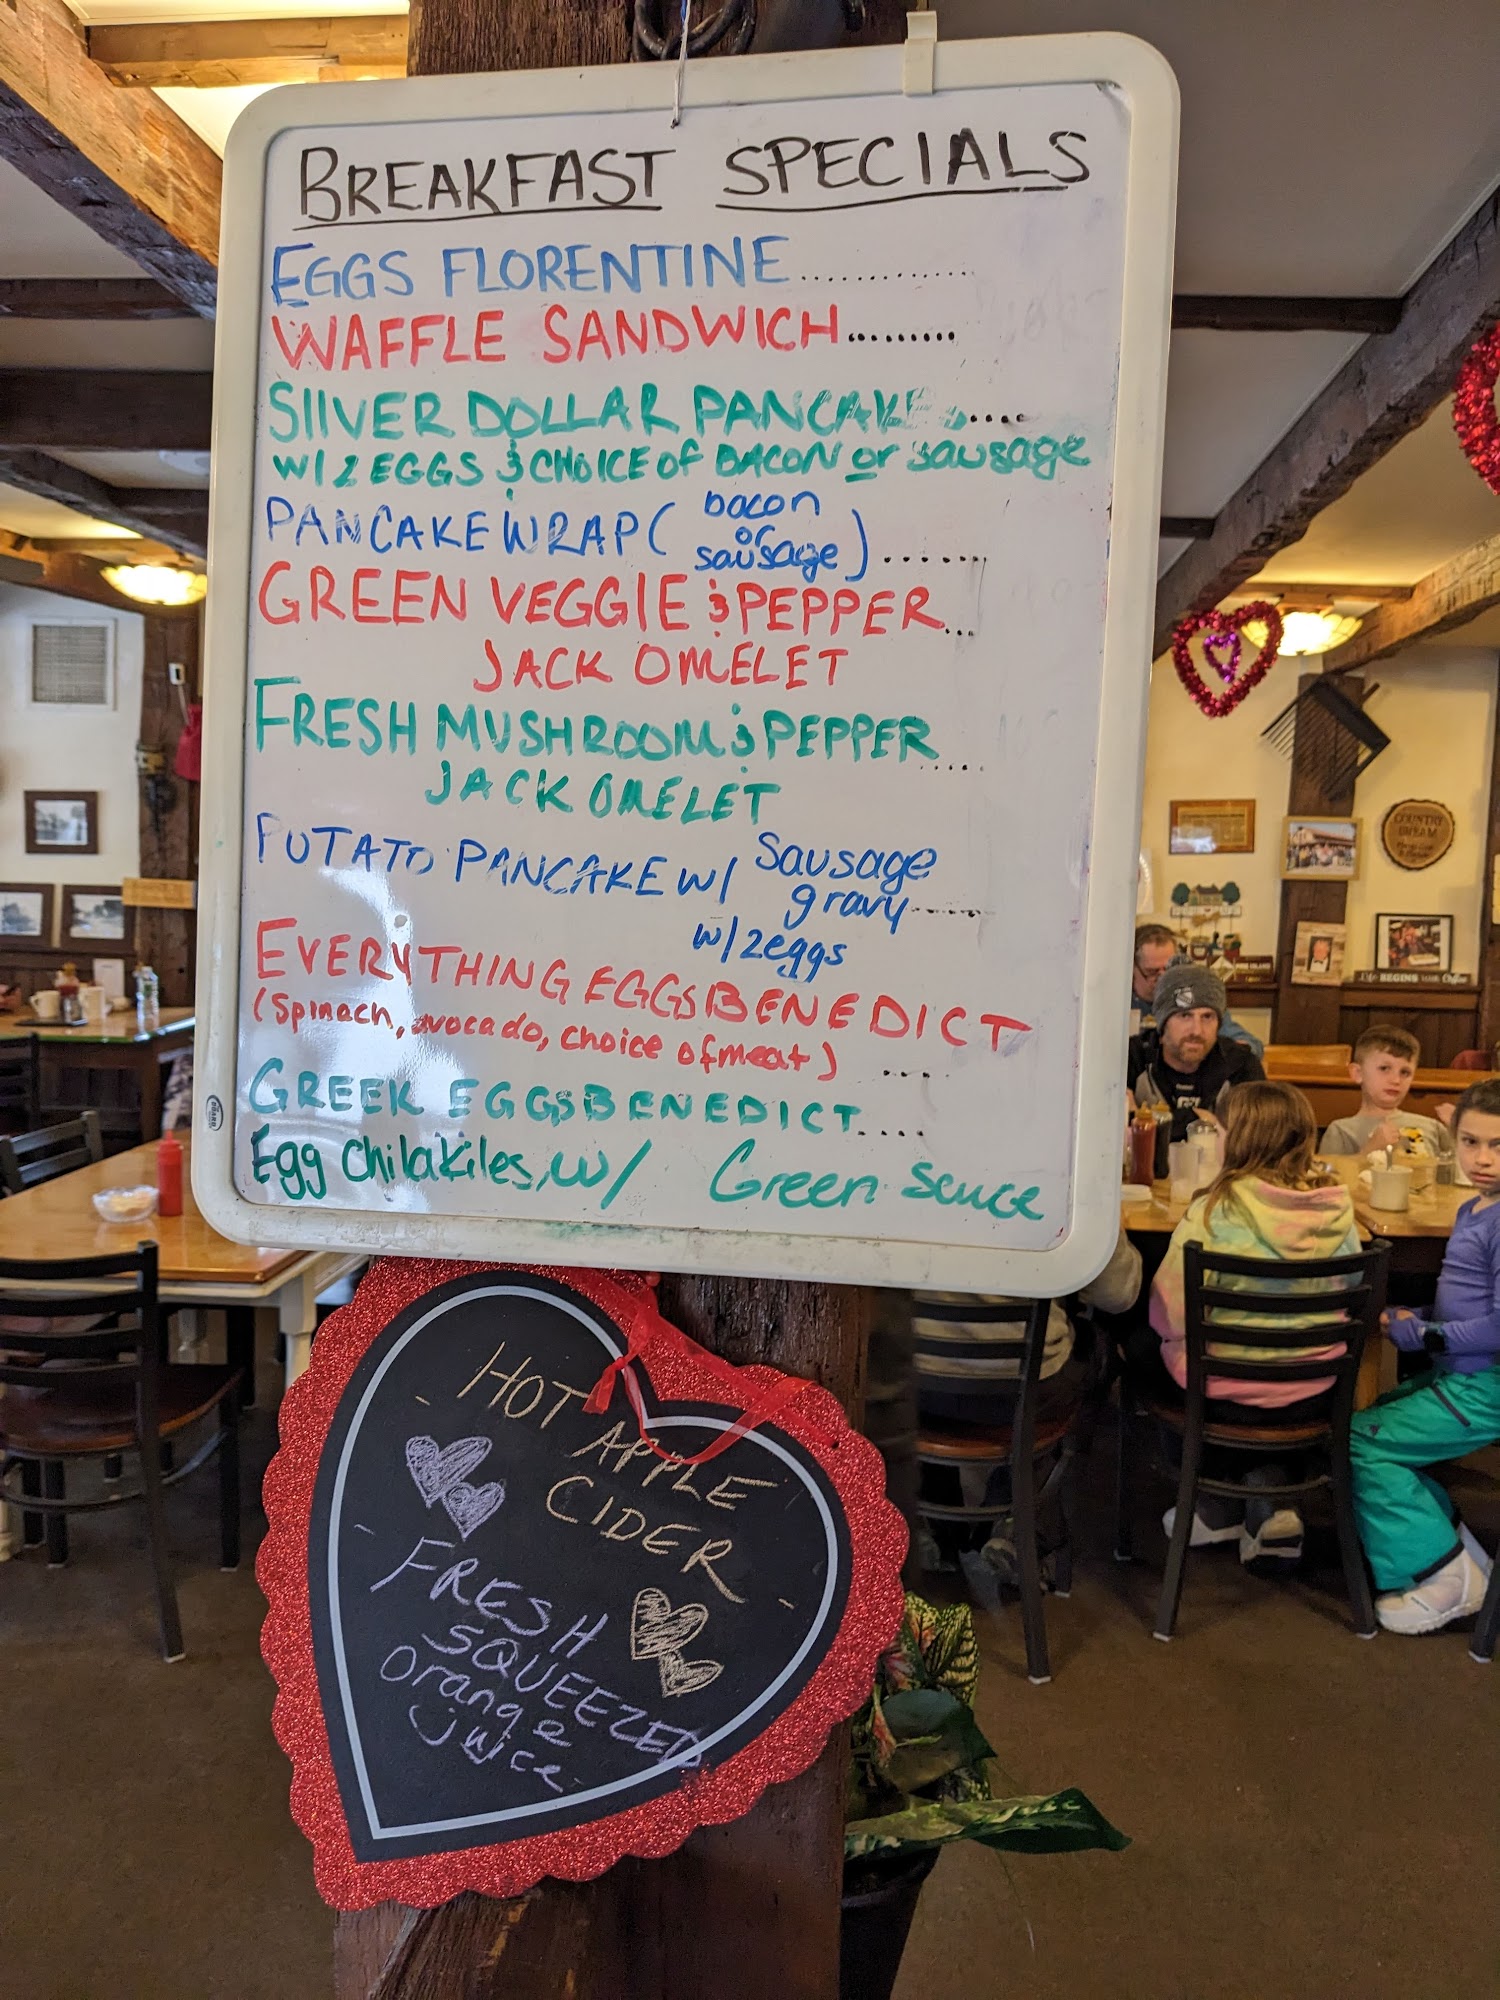 BREAKFAST SPECIALS
EGGS FLORENTINE.............
WAFFLE SANDWICH.........
SIIVER DOLLAR PANCAKE.....
W/2 EGGS & CHOICE of BACON or sausage
PANCAKE WRAP ( bacon or sausage ) ......
GREEN VEGGIE & PEPPER...
JACK OMELET
FRESH MUSHROOM & PEPPER....
JACK OMELET
PUTATO PANCAKE W/ Sausage
gravy.....
w/2eggs
EVERYTHING EGGS BENEDICT
(Spinach, avocado, choice of meat) ....
GREEK EGGS BENEDICT....
Egg Chilakiles, w/ Green sauce
- HOT APPLE
CIDER -
- FRESH
SQUEEZED
Orange
juice
COUNTRY
DREAM
BEGINS